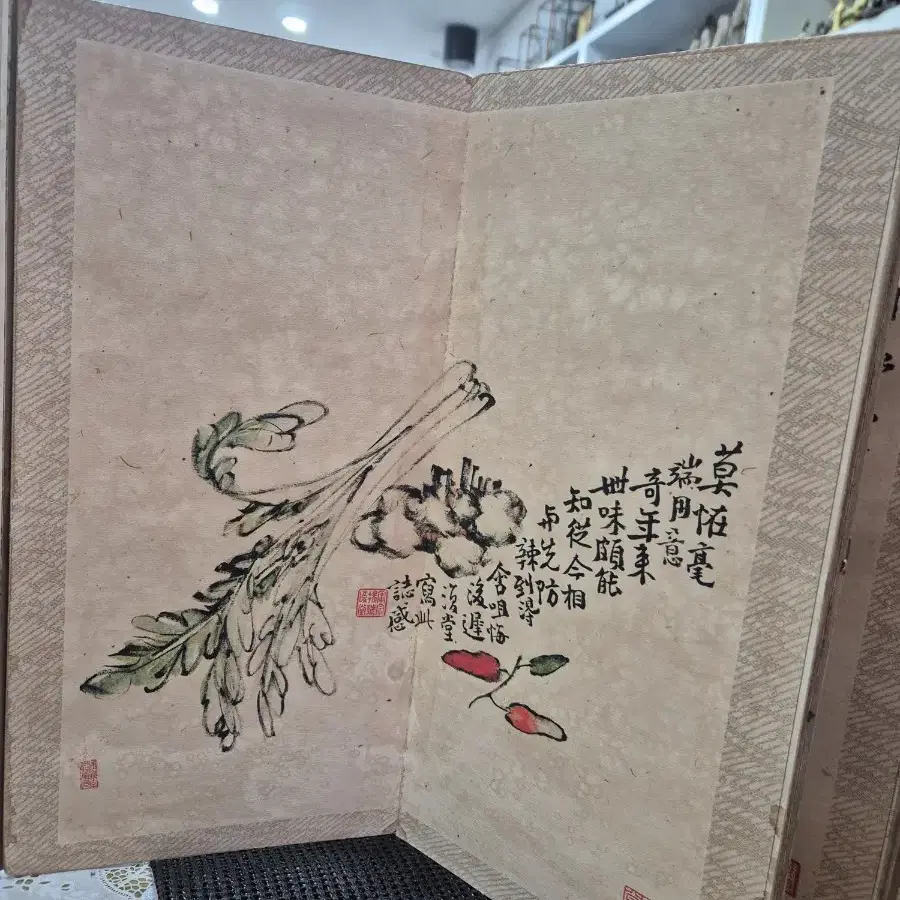 莫怪毫
端用意
奇年来
世味頗能
知從今相
与先防
辣到得
含咀悔
後遲
復堂
寫此
誌感